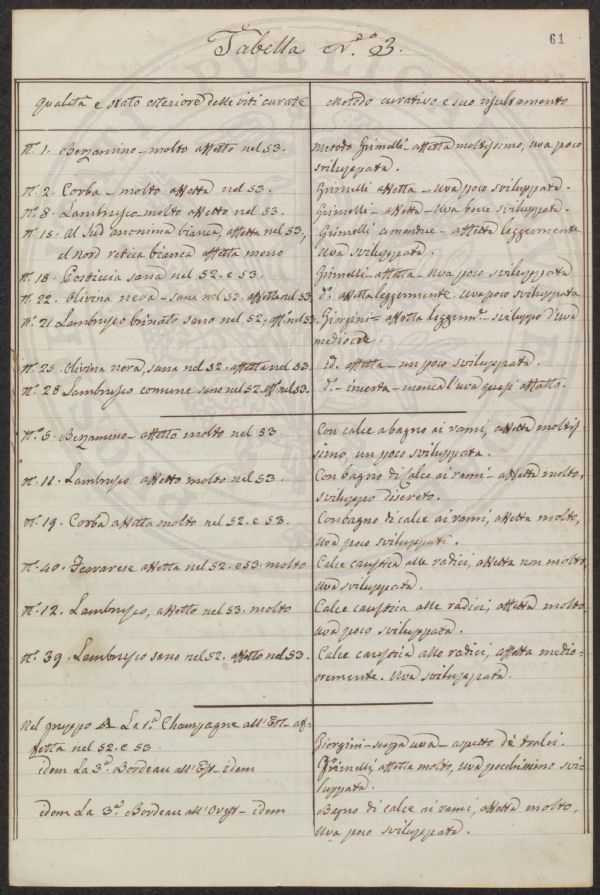 61
Tabella N.º 3.
Qualità e stato esteriore delle viti curate
Metodo curativo e suo risultamento
Nº. 1. Berzamino – molto affetto nel 53.
Metodo Grimelli – affetta moltissimo, uva poco
sviluppata.
Nº. 2. Corba – molto affetta nel 53.
Grimelli affetta – uva poco sviluppata.
Nº. 8. Lambrusco molto affetto nel 53.
Grimelli – affetta – uva bene sviluppata.
Nº. 15. al Sud anonima bianca, affetta nel 53,
Grimelli amendue – affetta leggermente
al Nord retica bianca affetta meno
uva sviluppata.
Nº. 18. Posticcia sana nel 52. e 53.
Grimelli – affetta – uva poco sviluppata
Nº. 22. Olivina nera – sana nel 52. affetta nel 53
dº. affetta leggermente. uva poco sviluppata
Nº. 21 Lambrusco brinato sano nel 52, aff.º nel 53.
Giorgini – affetta leggerm.e – sviluppo d'uva
mediocre.
Nº. 25. Olivina nera, sana nel 52. affetta nel 53.
id. affetta – un poco sviluppata.
Nº. 28 Lambrusco comune sano nel 52. aff.º nel 53.
dº. – incerta – manca l'uva quasi affatto.
Nº. 5. Berzamino – affetto molto nel 53.
Con calce a bagno ai rami, affetta moltis
simo, un poco sviluppata.
Nº. 11. Lambrusco affetto molto nel 53.
Con bagno di calce ai rami – affetta molto,
sviluppo discreto.
Nº. 19. Corba affetta molto nel 52. e 53.
Con bagno di calce ai rami, affetta molto,
uva poco sviluppata.
Nº. 40. affetta nel 52. e 53. molto
Calce caustica alle radici, affetta non molto
uva sviluppata.
Nº. 12. Lambrusco, affetto nel 53. molto
Calce caustica alle radici, affetta molto
uva poco sviluppata.
Nº. 39. Lambrusco sano nel 52. affetto nel 53.
Calce caustica alle radici, affetta medio=
cremente. Uva sviluppata.
Nel gruppo A La 1.ª Champagne all'Est – af=
fetta nel 52. e 53
Giorgini – senza uva – aspetto de' tralci.
idem La 3.ª Bordeau all'Est – idem
Grimelli affetta molto, uva pochissimo svi=
luppata.
idem La 3.ª Bordeau all'Ovest – idem
Bagno di calce ai rami, affetta molto,
uva poco sviluppata.